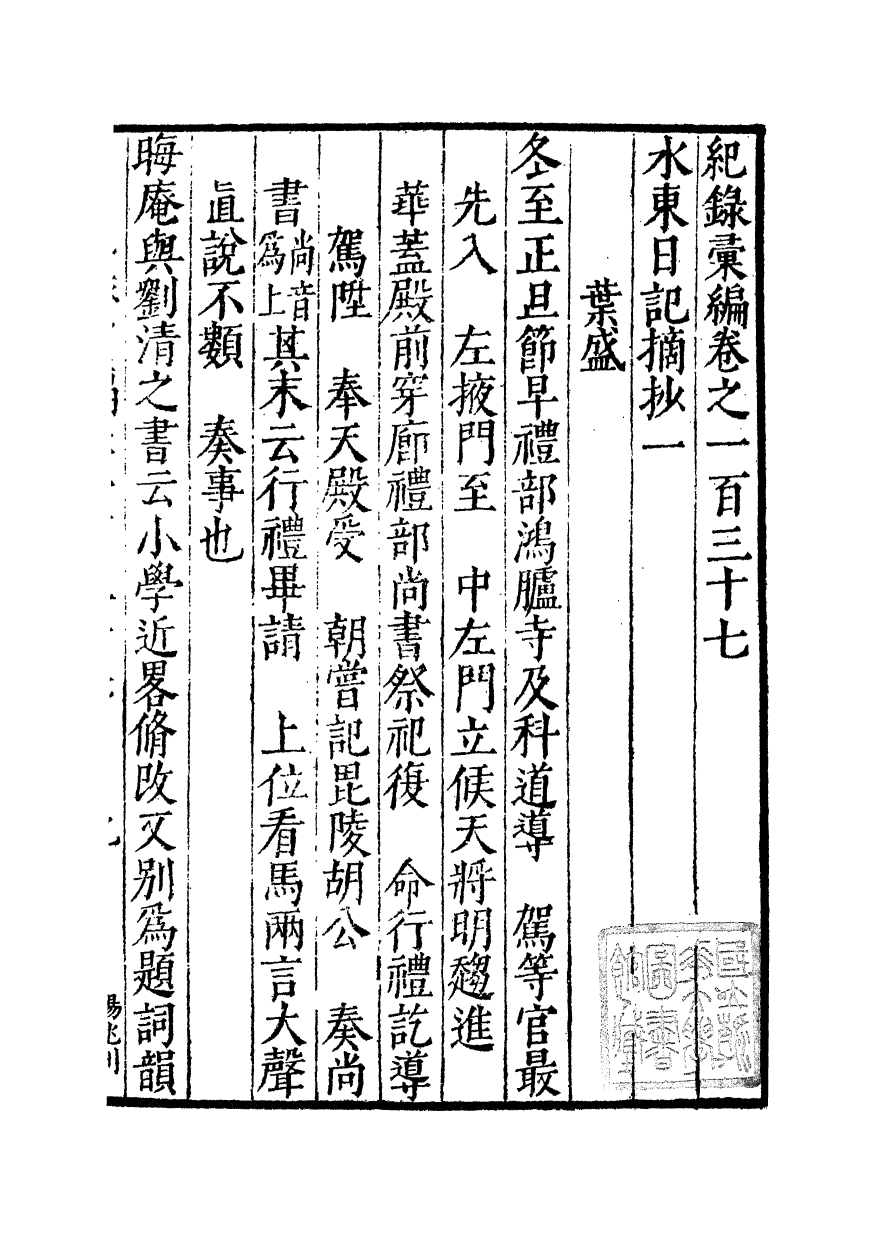 紀錄彙編卷之一百三十七
水東日記摘抄一
葉盛
冬至正旦節早禮部鴻臚寺及科道導　駕等官最
先入　左掖門至　中左門立候天將明趨進
華蓋殿前穿廊禮部尚書祭祀復　命行禮訖導
駕陞　奉天殿受　朝嘗記毘陵胡公　奏尚
書尚音為上其末云行禮畢請　上位看馬兩言大聲
直說不類　奏事也
晦庵與劉清之書云小學近畧脩改又別爲題詞韻